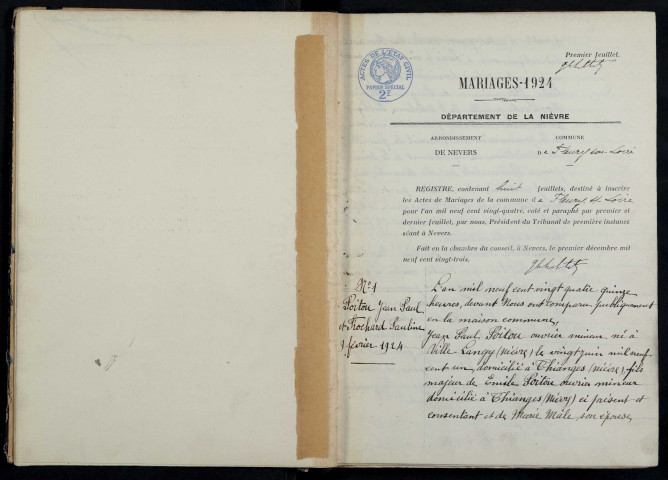 Premier feuillet.
ACTES DE L'ETAT CIVIL
PAPIER SPÉCIAL
2F
MARIAGES-1924
DÉPARTEMENT DE LA NIÈVRE
ARRONDISSEMENT
DE NEVERS
COMMUNE
De Fleury sur Loire
REGISTRE, contenant huit feuillets, destiné à inscrire
les Actes de Mariages de la commune de Fleury s/ Loire
pour l'an mil neuf cent vingt-quatre, coté et paraphé par premier et
dernier feuillet, par nous, Président du Tribunal de première instance
séant à Nevers.
Fait en la chambre du conseil, à Nevers, le premier décembre mil
neuf cent vingt-trois.
N° 1
Poitou Jean Paul
et Frochard Pauline
9 février 1924
L'an mil neuf cent vingt quatre quinze
heures, devant Nous ont comparu publiquement
en la maison commune,
Jean Paul Poitou ouvrier mineur né à
Ville Langy (Nièvre) le vingt juin mil neuf
cent un domicilié à Thianges (nièvre) fils
majeur de Emile Poitou ouvrier mineur
domicilié à Thianges (Nièvre) ci présent et
consentant et de Marie Mâle son épouse,